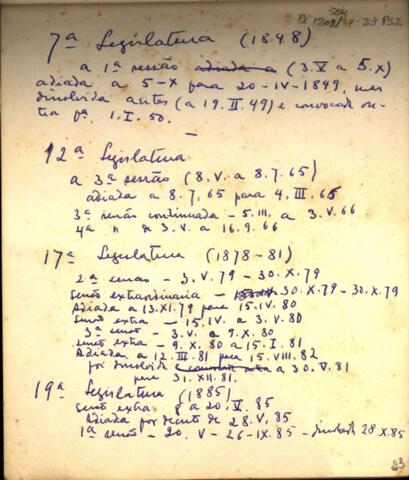 DL 1209/57-23 PS2
7ª Legislatura (1848)
a 1ª sessão adiada a (3.V a 5.X)
adiada a 5-X para 20-IV-1849, mas
dissolvida antes (a 19.II.49) e convocada ou-
tra pª 1.I.50.
12ª Legislatura
a 3ª sessão (8.V. a 8.7.65)
adiada a 8.7.65 para 4.III.65
3ª sessão continuada - 5.III. a 3.V.66
4ª " de 3.V. a 16.9.66
17ª Legislatura (1878-81)
2ª sessão - 3.V.79 - 30.X.79
sessão extraordinaria - 30.X.79 - 30.X.79
Adiada a 13.XI.79 para 15.IV.80
sessão extra - 15.IV. a 3.V.80
3ª sessão - 3.V. a 9.X.80
sessão extra - 9.X.80 a 15.I.81
Adiada a 12.III.81 para 15.VIII.82
foi dissolvida a 30.V.81
para 31.XII.81.
19ª Legislatura (1885)
sessão extra 8 a 20.V.85
Adiada por decreto de 28.V.85
1ª sessão - 20.V - 26-IX.85 - 28.X.85
23